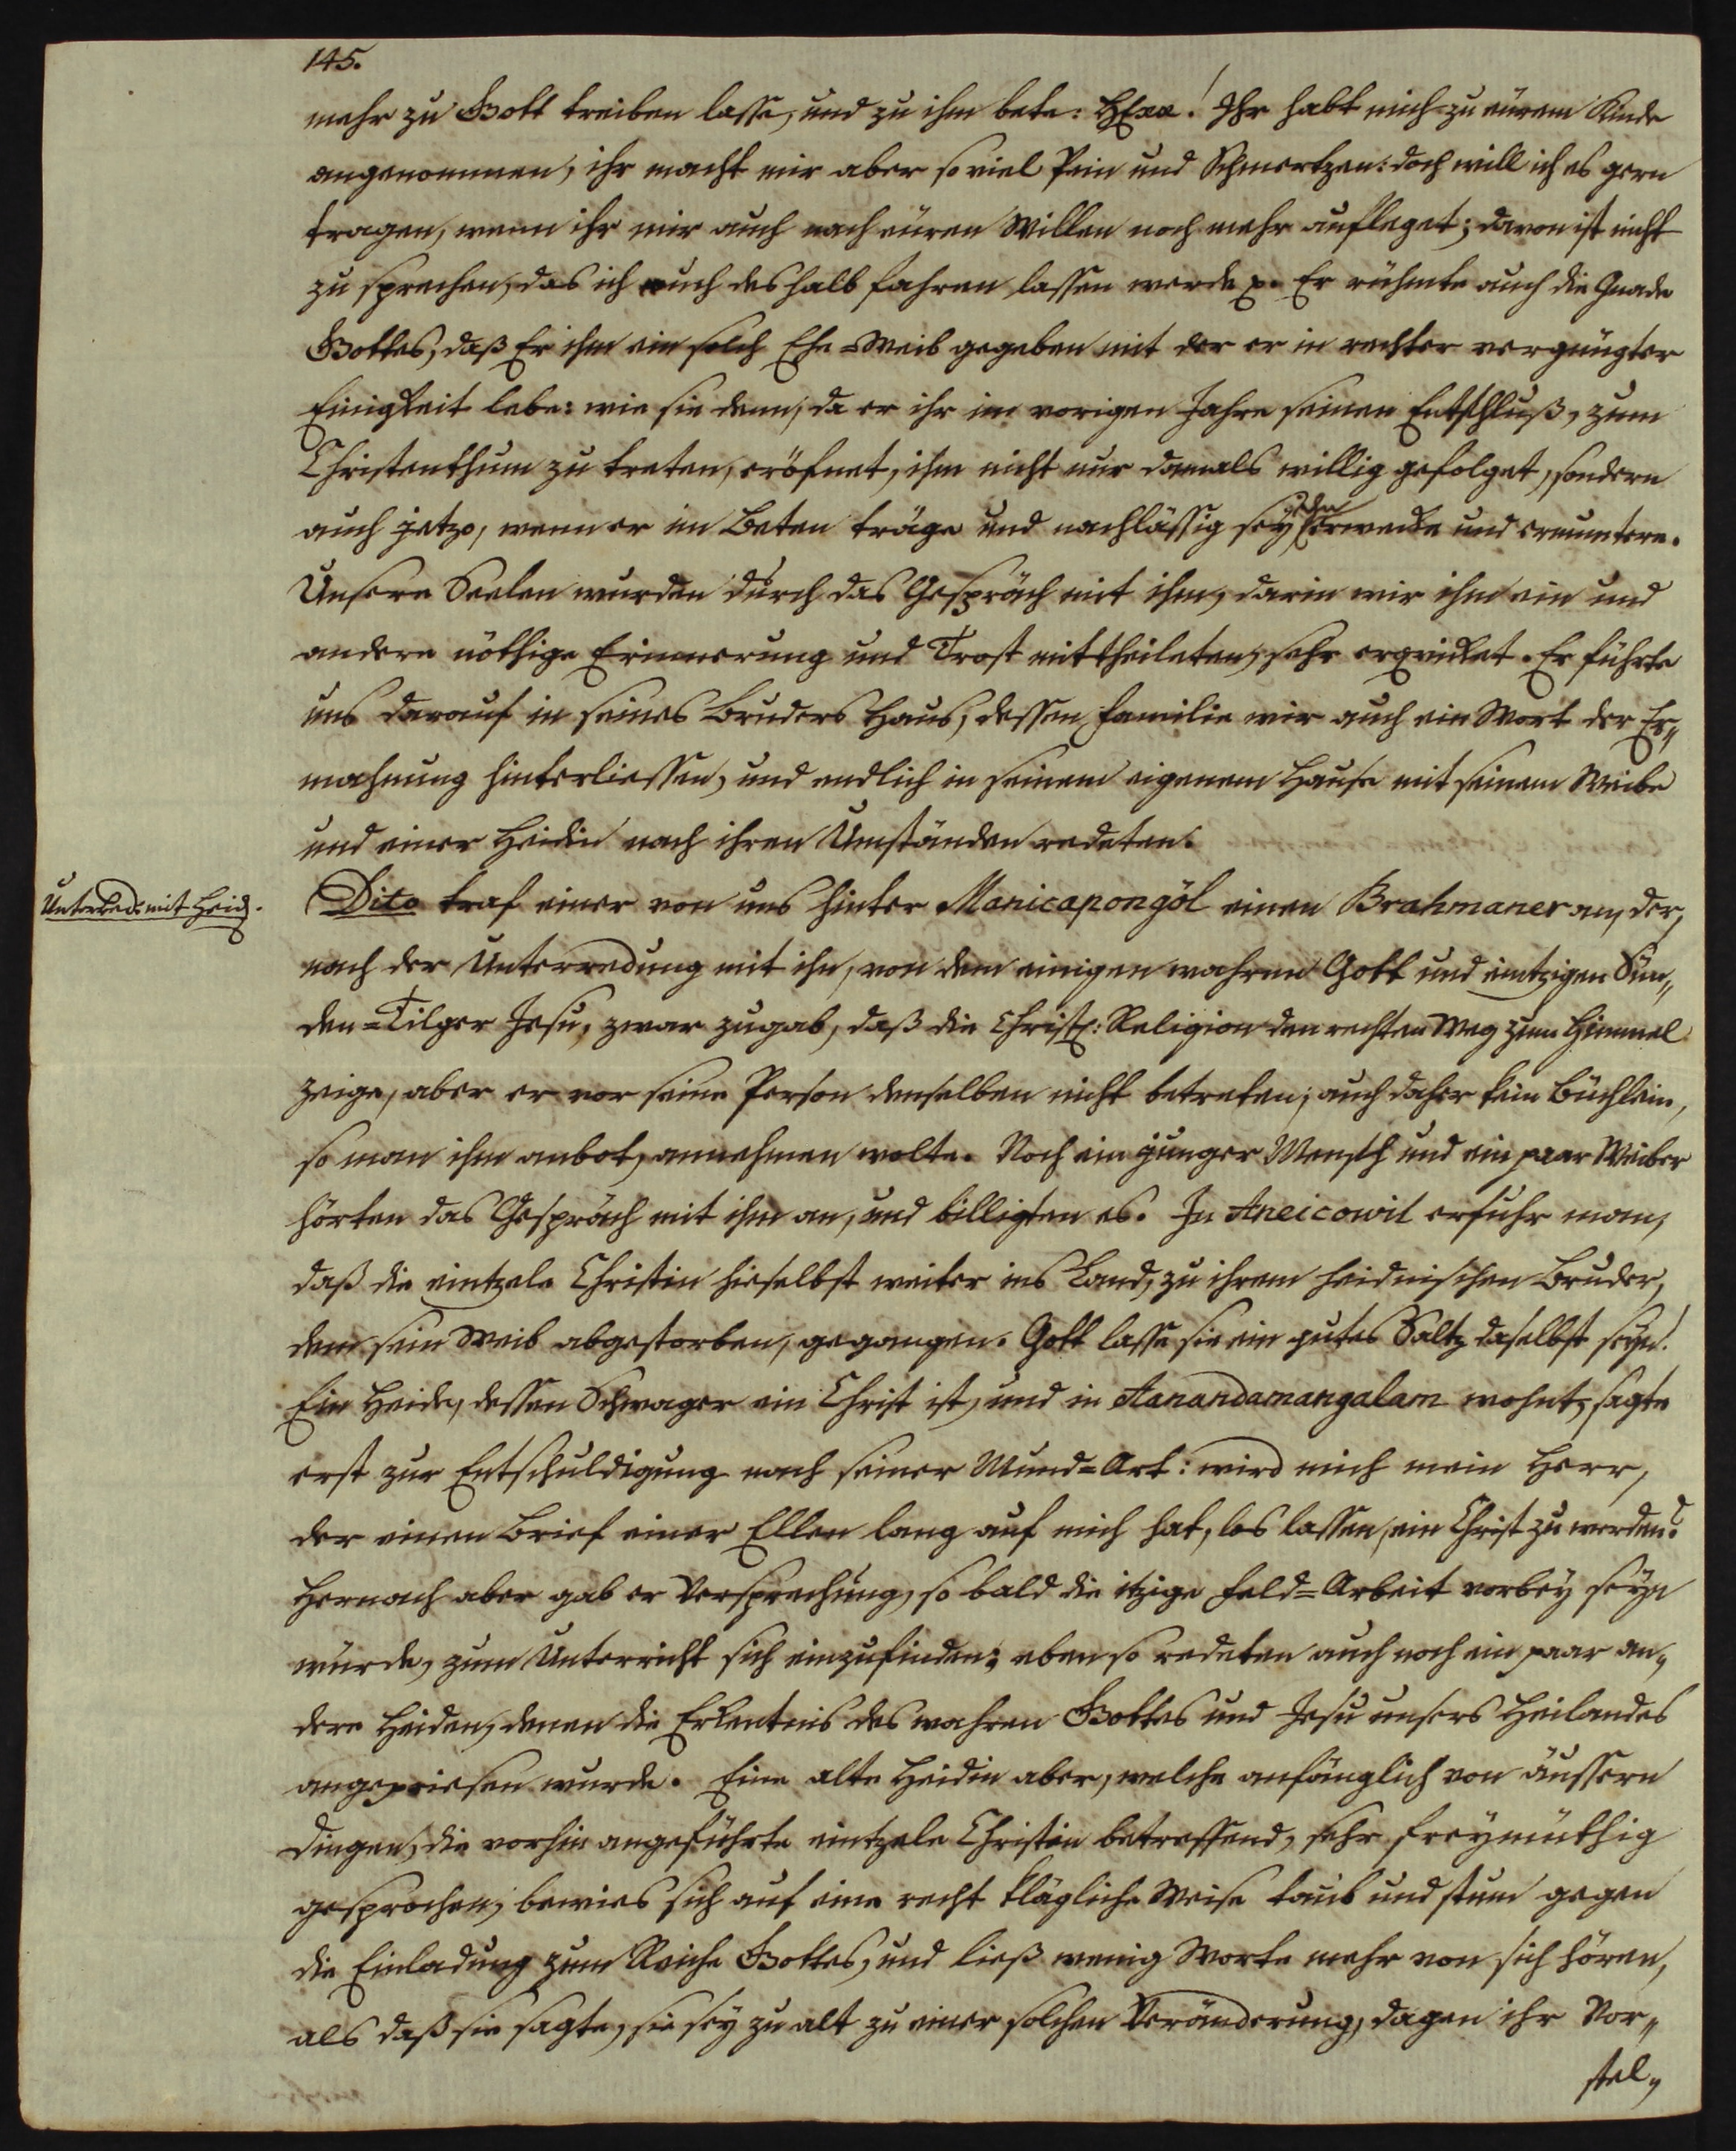 145.
mehr zu Gott treiben lasse, und zu ihm bete: HErr! Ihr habt mich zu eürem Kinde
angenommen, ihr macht mir aber so viel Pein und Schmertzen: doch will ich es gern
tragen, wenn ihr mir auch nach eüren Willen noch mehr aufleget; davon ist nicht
zu sprechen, das ich euch deshalb fahren lassen werde p. Er rühmte auch die Gnade
Gottes, daß Er ihm ein solch Ehe-Weib gegeben mit der er in rechter vergnügter
Einigkeit lebe: wie sie denn, da er ihr im vorigen Jahre seinen Entschluß, zum
Christenthum zu treten, eröfnet, ihm nicht nur damals willig gefolget, sondern
auch jetzo, wenn er im Beten träge und nachlässig sey erwecke und ermuntere.
Unsere Seelen wurden durch das Gespräch mit ihm, darin wir ihm ein und
andere nöthige Erinnerung und Trost mittheileten, sehr erqvicket. Er führte
uns darauf in seines Bruders Haus, dessen Familie wir auch ein Wort der Er„
mahnung hinterliessen, und endlich in seinem eigenem Hause mit seinem Weibe
und einer Heidin nach ihren Umständen redeten.
Unterred. mit Heid.
Dito traf einer von uns hinter Manicapongöl einen Brahmaner an, der,
nach der Unterredung mit ihm, von dem einigen wahren Gott und eintzigen Sün„
den-Tilger Jesu, zwar zugab, daß die Christl: Religion den rechten Weg zum Himmel
zeige, aber er vor seine Person denselben nicht betreten; auch daher kein Büchlein,
so man ihm anbot, annehmen wolte. Noch ein junger Mensch und ein paar Weiber
hörten das Gespräch mit ihm an, und billigten es. In Aneicowil erfuhr man,
daß die eintzele Christin hieselbst weiter ins Land, zu ihrem heidnischen Bruder,
dem sein Weib abgestorben, gegangen. Gott lasse sie ein gutes Saltz daselbst seyn!
Ein Heide, dessen Schwager ein Christ ist, und in Aanandamangalam wohnt, sagte
erst zur Entschuldigung nach seiner Mund-Art: wird mich mein Herr,
der einen Brief einer Ellen lang auf mich hat, los lassen, ein Christ zu werden?
Hernach aber gab er Versprechung, so bald die itzige Feld-Arbeit vorbey seyn
würde, zum Unterricht sich einzufinden; eben so redeten auch noch ein paar an„
dere Heiden, denen die Erkentnis des wahren Gottes und Jesu unsers Heilandes
angepriesen wurde. Eine alte Heidin aber, welche anfänglich von äussern
Dingen, die vorhin angeführte eintzele Christin betreffend, sehr freymüthig
gesprochen, bewies sich auf eine recht klägliche Weise taub und stum gegen
die Einladung zum Reiche Gottes, und ließ wenig Worte mehr von sich hören,
als daß sie sagte, sie sey zu alt zu einer solchen Veränderung, dagen ihr Vor„
stel„